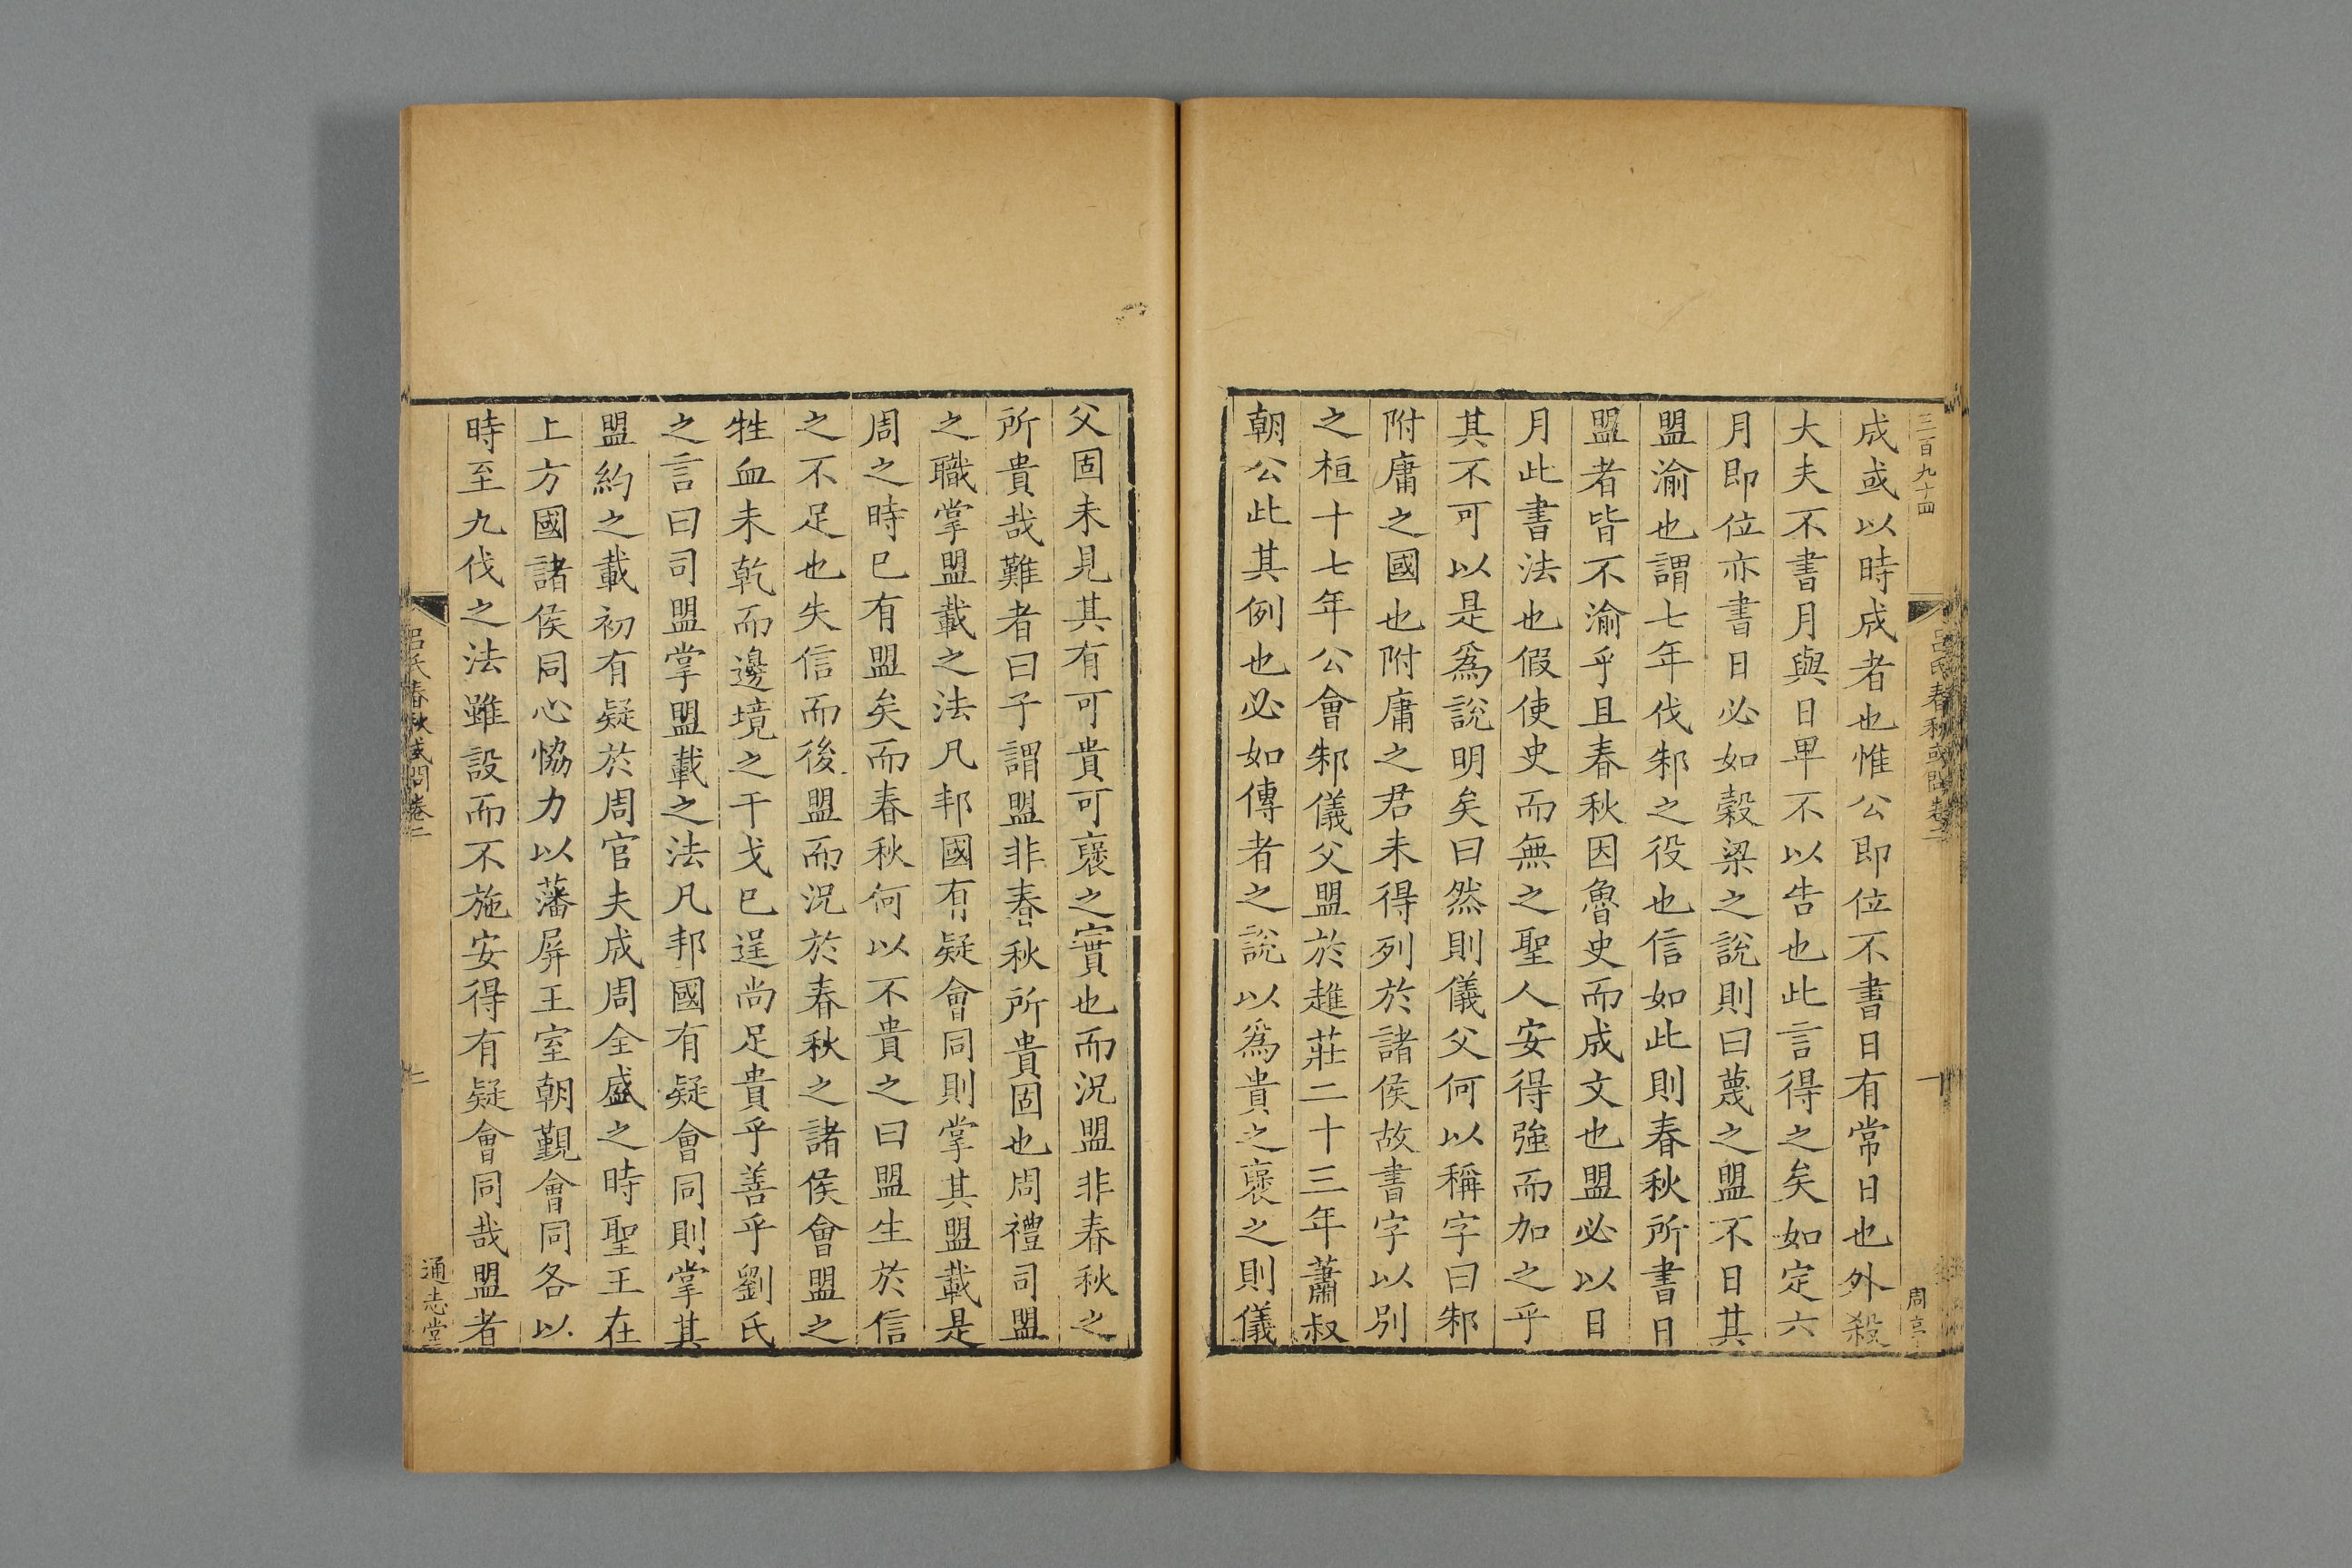 三百九十四
呂氏春秋或問卷二
一
周言
成或以時成者也惟公即位不書日有常日也外殺
大夫不書月與日卑不以告也此言得之矣如定六
月即位亦書日必如穀梁之說則曰蔑之盟不日其
盟渝也謂七年伐邾之役也信如此則春秋所書日
盟者皆不渝乎且春秋因魯史而成文也盟必以日
月此書法也假使史而無之聖人安得強而加之乎
其不可以是爲說明矣曰然則儀父何以稱字曰邾
附庸之國也附庸之君未得列於諸侯故書字以別
之桓十七年公會邾儀父盟於趡莊二十三年蕭叔
朝公此其例也必如傳者之說以爲貴之褒之則儀
父固未見其有可貴可褒之實也而況盟非春秋之
所貴哉難者曰子謂盟非春秋所貴固也周禮司盟
之職掌盟載之法凡邦國有疑會同則掌其盟載是
周之時已有盟矣而春秋何以不貴之曰盟生於信
之不足也失信而後盟而況於春秋之諸侯會盟之
牲血未乾而邊境之干戈已逞尚足貴乎善乎劉氏
之言曰司盟掌盟載之法凡邦國有疑會同則掌其
盟約之載初有疑於周官夫成周全盛之時聖王在
上方國諸侯同心恊力以藩屏王室朝覲會同各以
時至九伐之法雖設而不施安得有疑會同哉盟者
呂氏春秋或問卷二
二
通志堂